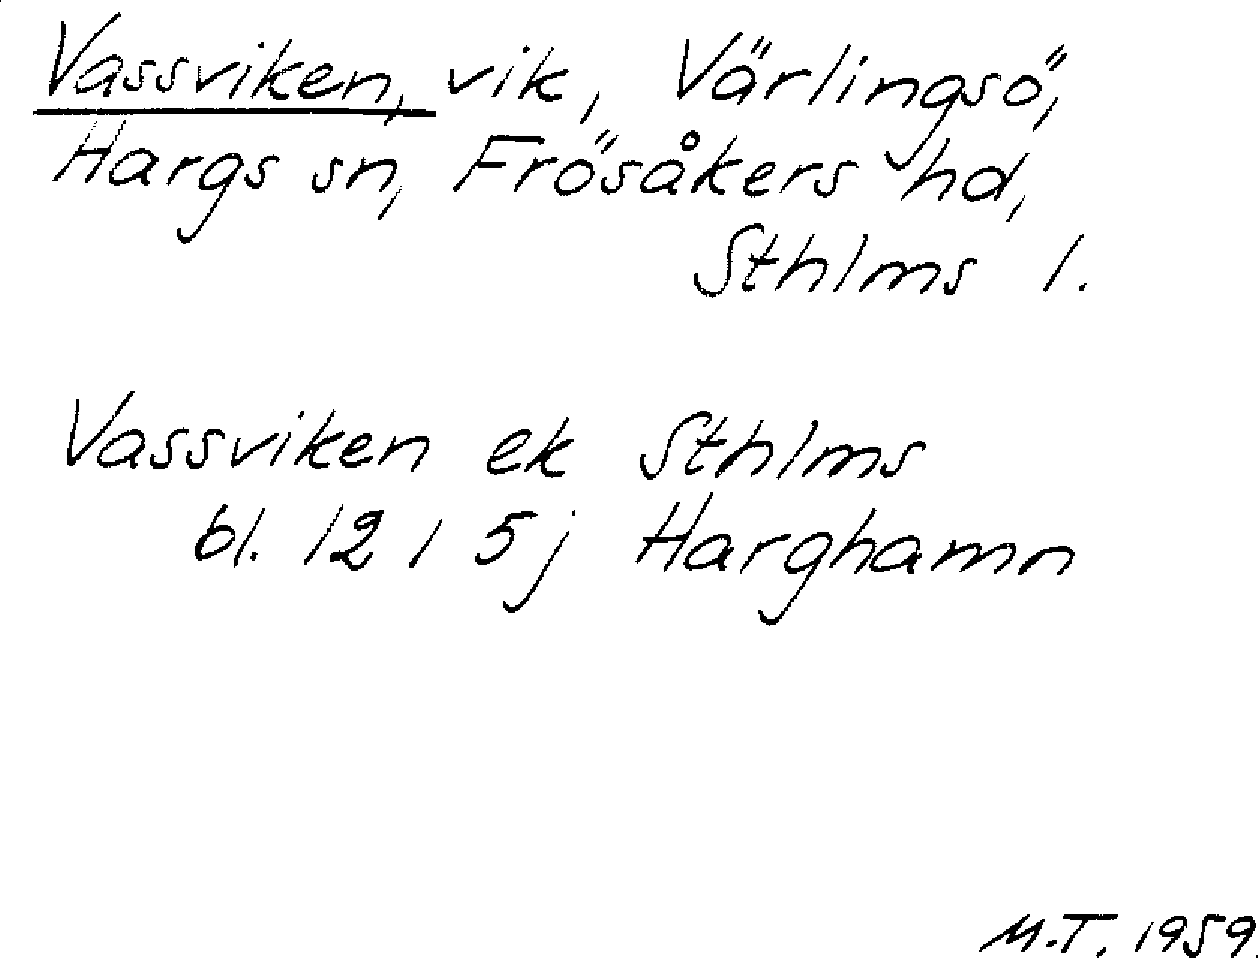 Vassviken, vik, Värlingsö,
Hargs sn, Frösåkers hd,
Sthlms l.
Vassviken ek Sthlms
bl. 12 I 5j Harghamn
M.T. 1959.